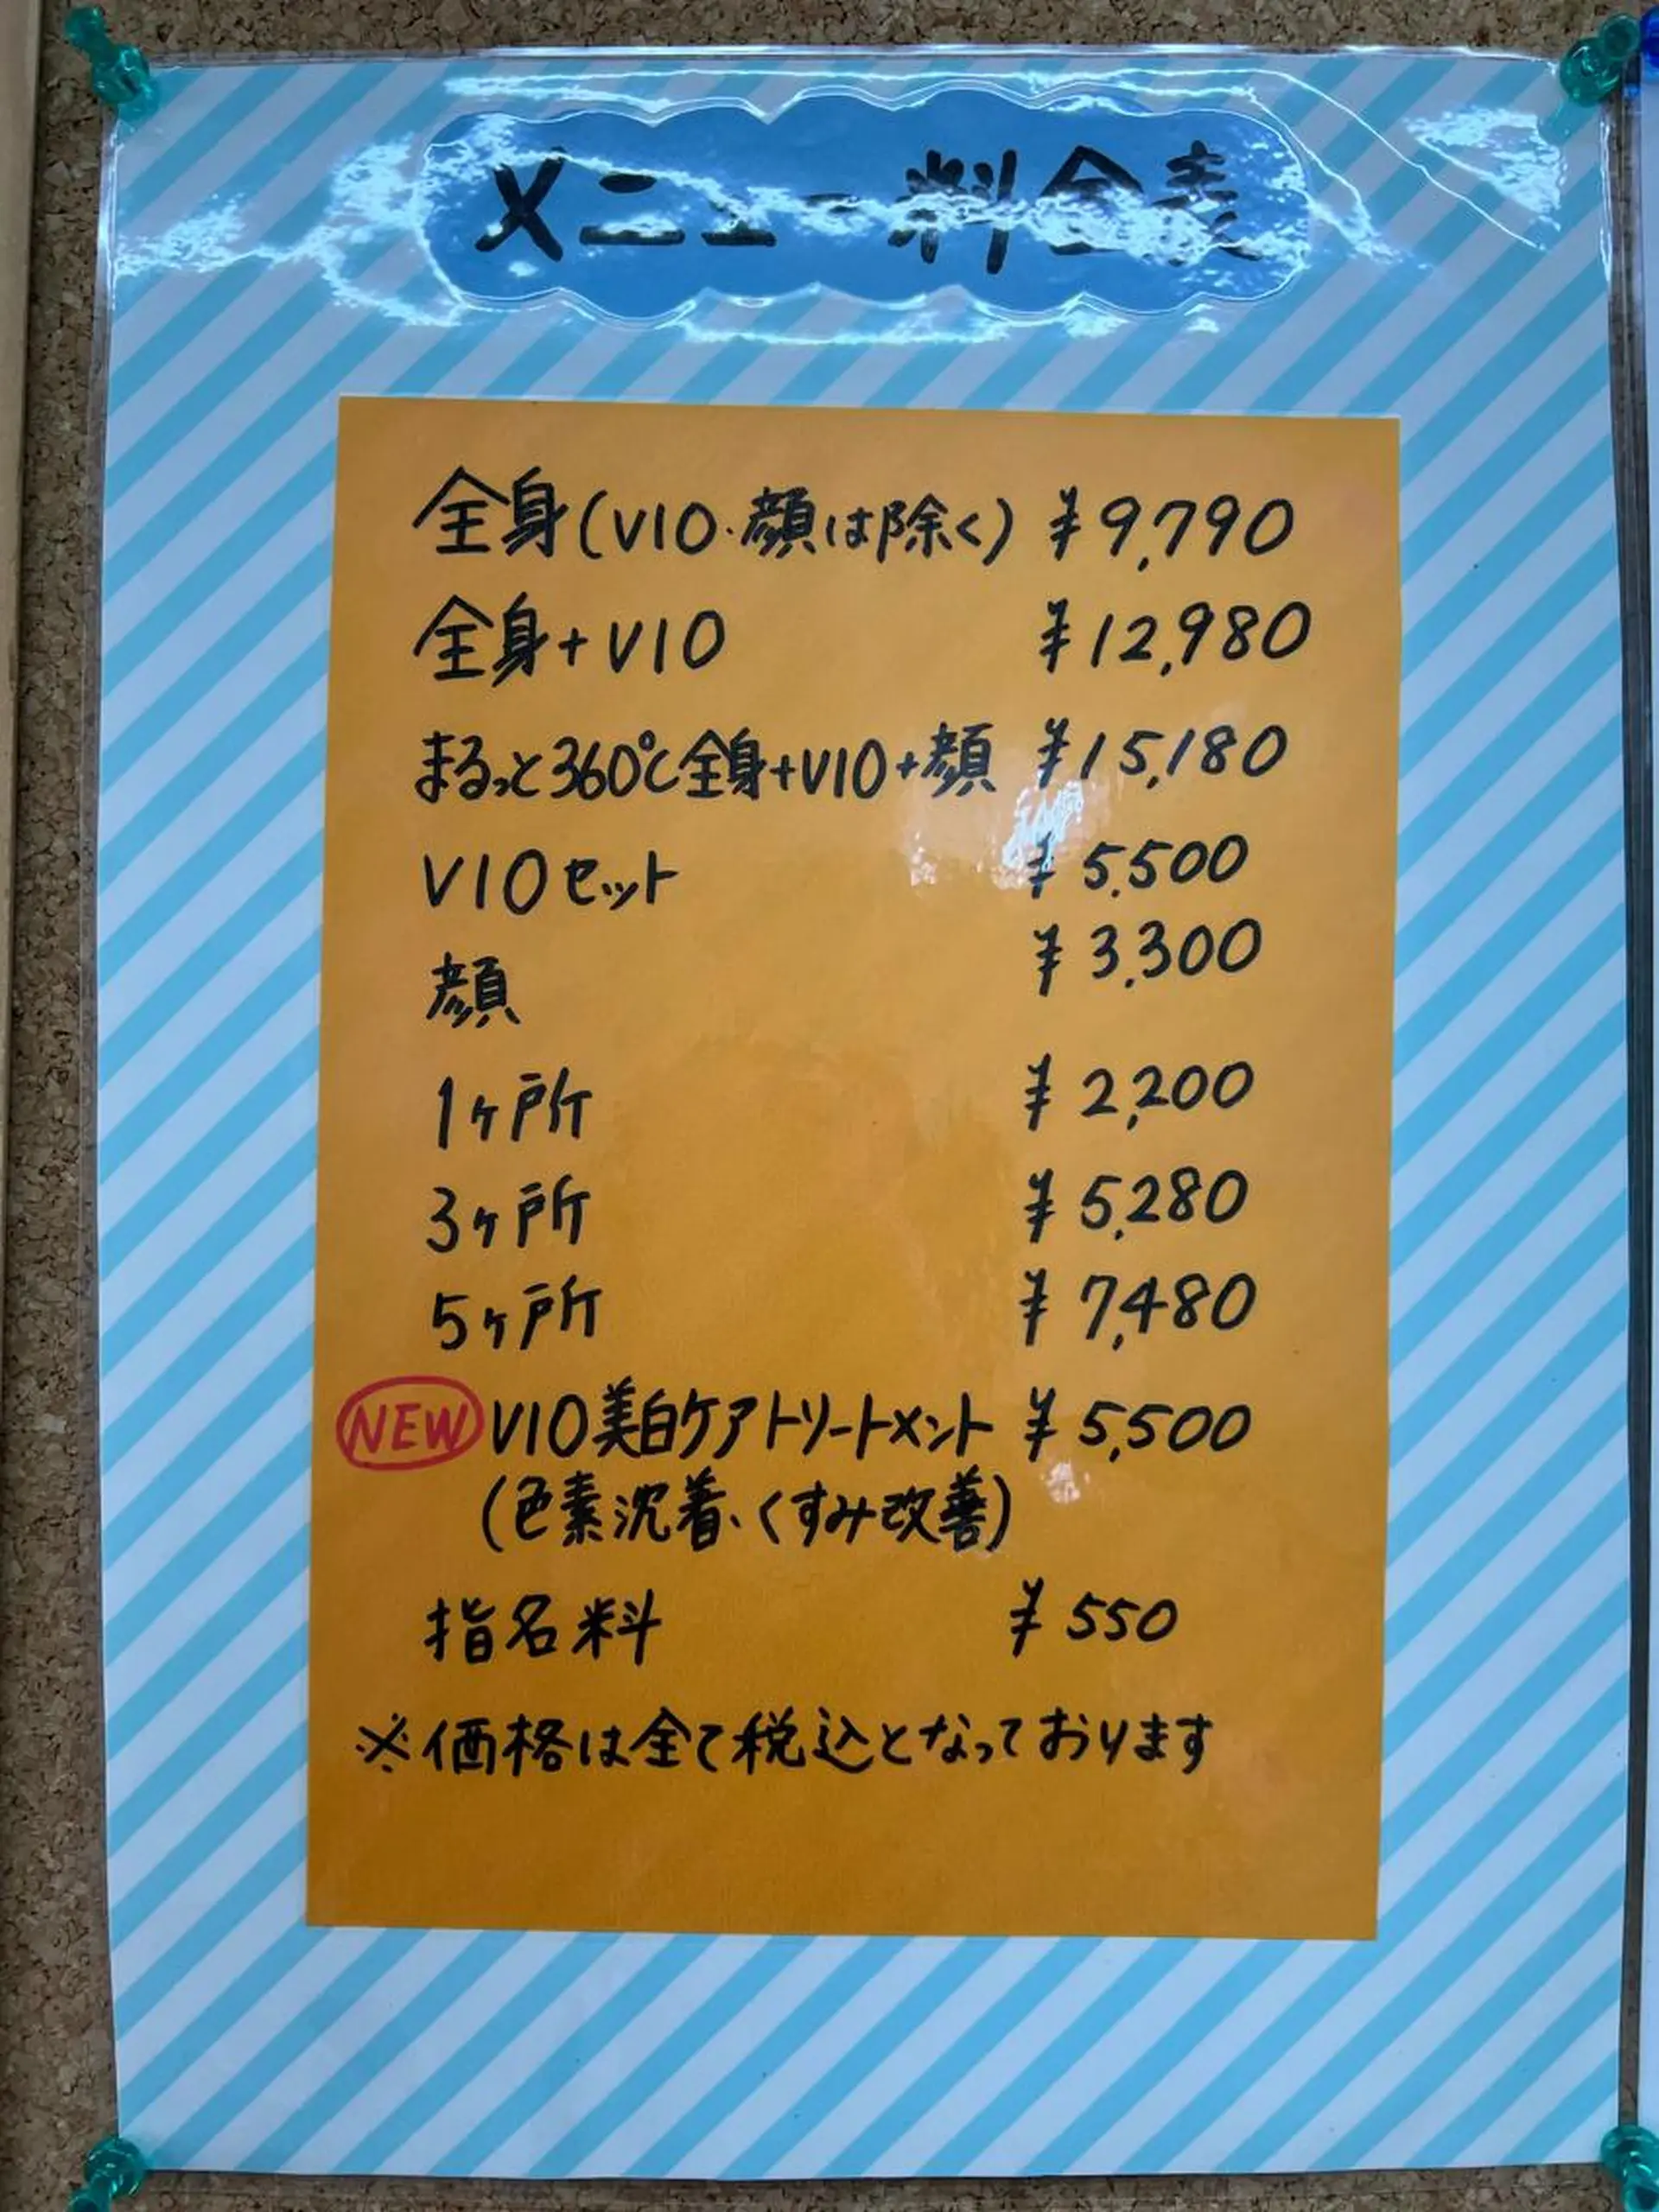 メニュー料金表
全身(VIO・顔は除く) ¥9,790
全身+VIO ¥12,980
まるっと360℃全身+VIO+顔 ¥15,180
VIOセット ¥5,500
顔 ¥3,300
1ヶ所 ¥2,200
3ヶ所 ¥5,280
5ヶ所 ¥7,480
NEW VIO美白ケアトリートメント ¥5,500
(色素沈着、くすみ改善)
指名料 ¥550
※価格は全て税込となっております